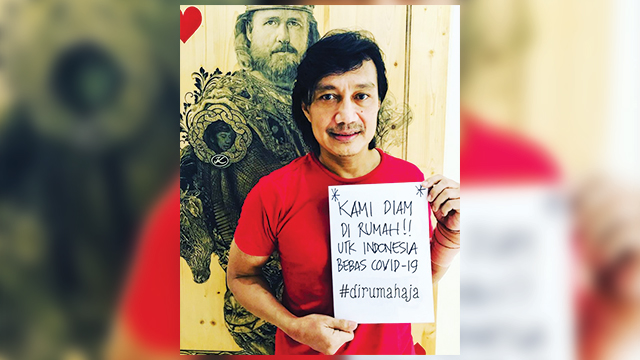 * KAMI DIAM *
DI RUMAH!!
UTK INDONESIA
BEBAS COVID-19
#dirumahaja